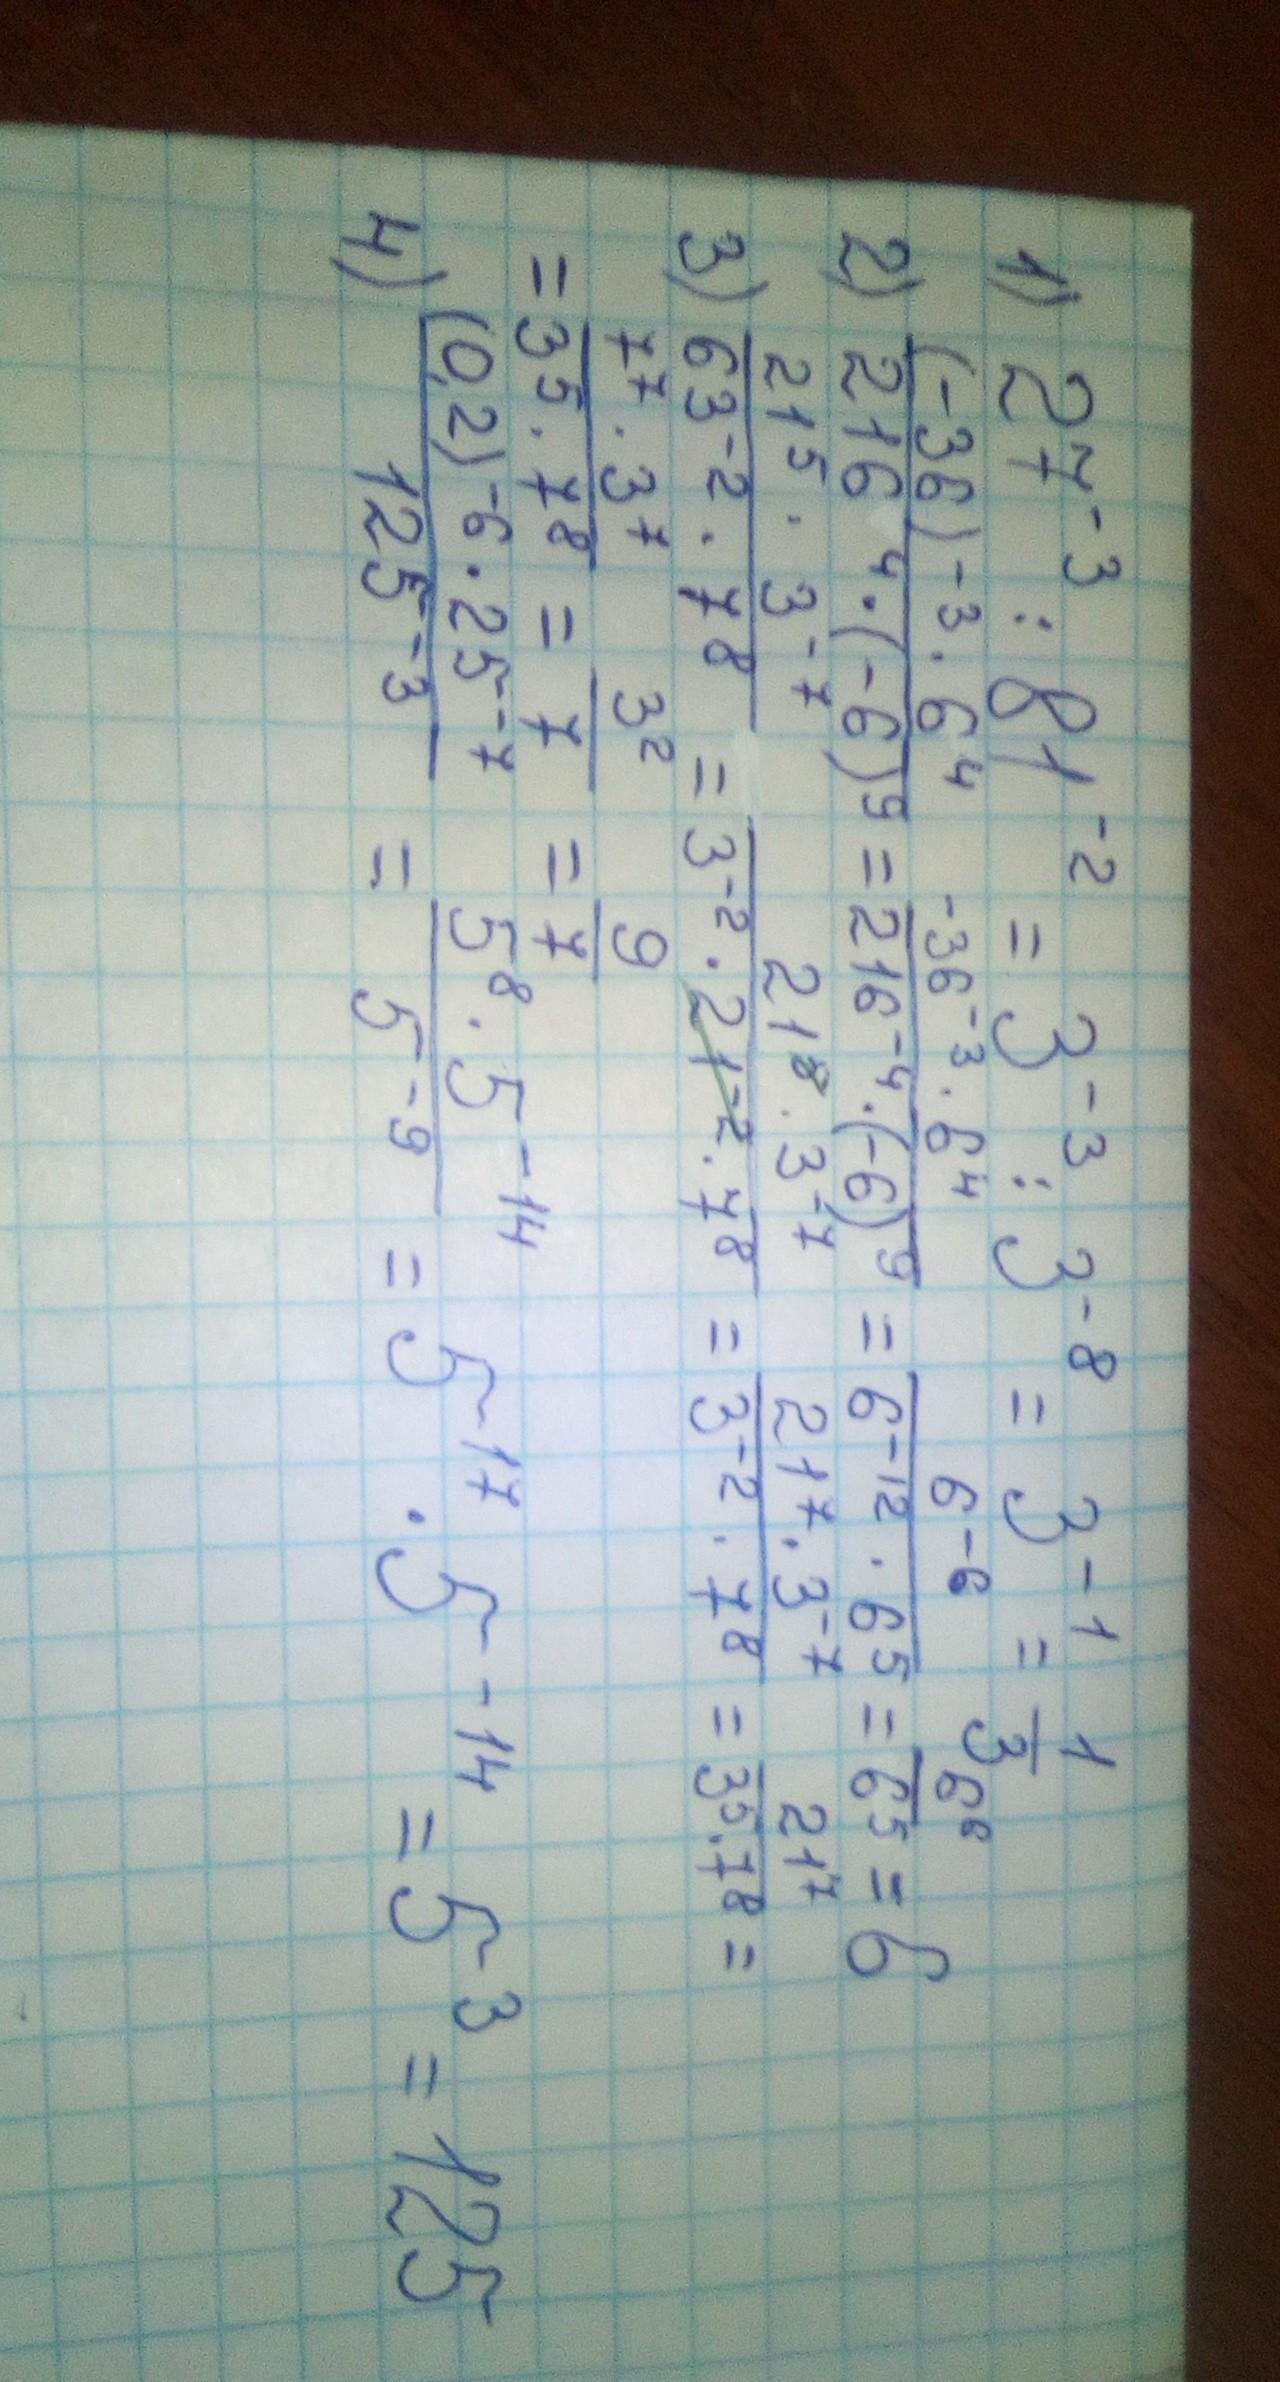 1) 27⁻³ : 81⁻² = 3⁻³ : 3⁻⁸ = 3⁻¹ = 1/3
2) ((-36)⁻³ · 6⁴)/(216⁴ · (-6)⁹) = (-36⁻³ · 6⁴)/(216⁻⁴ · (-6)⁹) = 6⁻⁶/(6⁻¹² · 6⁵) = 6⁶/6⁵ = 6
3) (21⁵ · 3⁻⁷)/(63⁻² · 7⁸) = (21⁸ · 3⁻⁷)/(3⁻² · 21⁻² · 7⁸) = (21⁷ · 3⁻⁷)/(3⁻² · 7⁸) = 21⁷/(3⁵ · 7⁸) =
= (7⁷ · 3⁷)/(3⁵ · 7⁸) = 3²/7 = 9/7
4) ((0,2)⁻⁶ · 25⁻⁷)/125⁻³ = (5⁸ · 5⁻¹⁴)/5⁻⁹ = 5¹⁷ · 5⁻¹⁴ = 5³ = 125